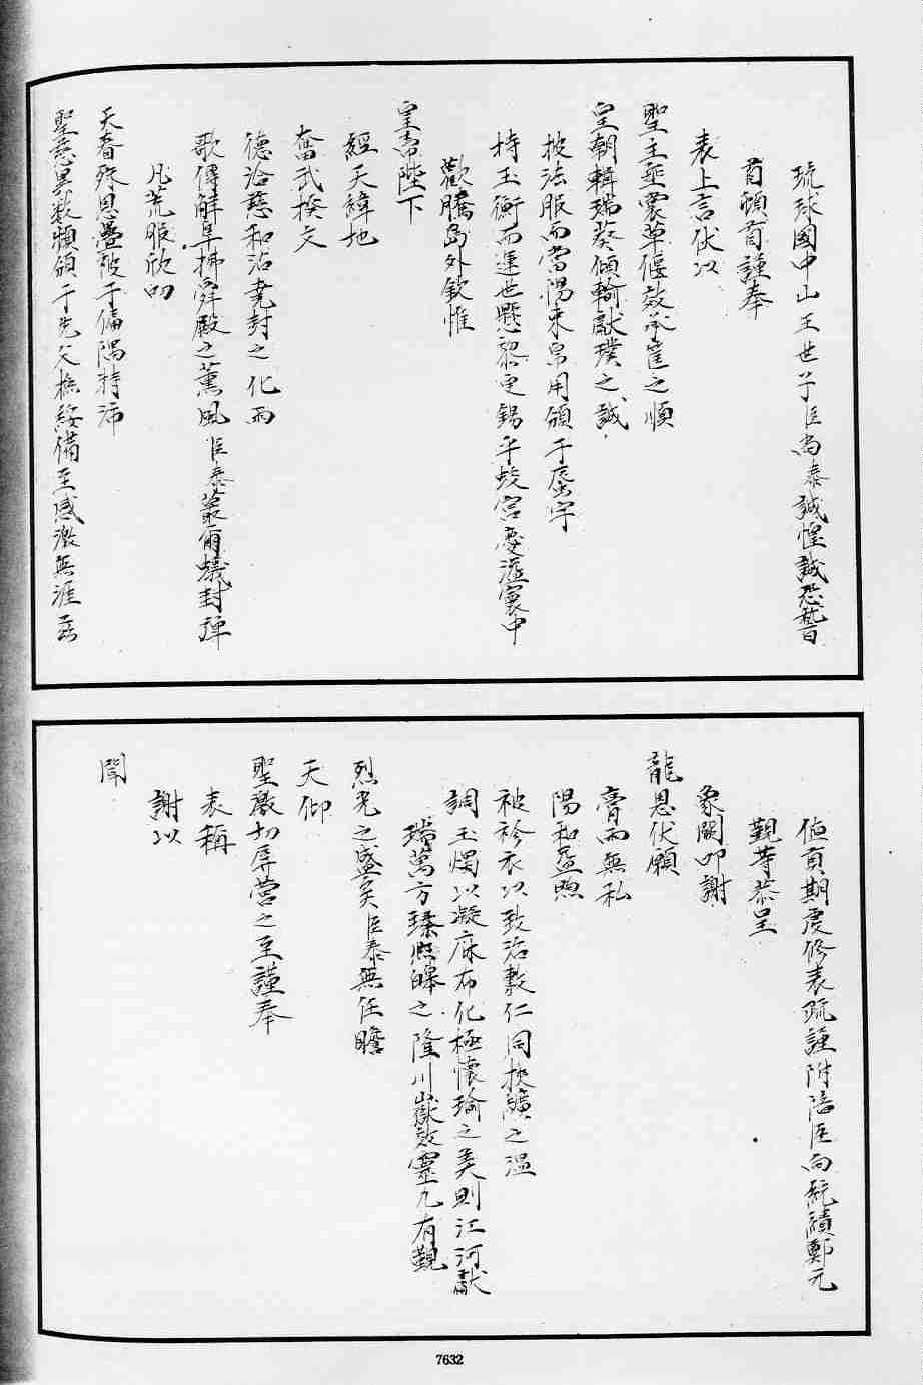 琉球國中山王世子臣尚泰誠惶誠恐稽
首頓首謹奉
表上言伏以
聖主垂裳草偃效承筐之順
皇朝輯瑞葵傾輸獻璞之誠
披法服而當陽束帛用頒于蜃宇
持玉衡而運世懸黎寵錫乎蛟宮慶溢寰中
歡騰島外欽惟
皇帝陛下
經天緯地
奮武揆文
德洽慈和沾堯封之化雨
歌傳解阜拂舜殿之薰風臣泰叢爾蟻封
凡荒服欣叨
天眷殊恩疊被于偏隅特沛
聖慈異數頻頒于先父撫綏備至感激無涯茲
值貢期虔修表疏謹附陪臣向統績鄭元
覲等恭呈
象闕叩謝
龍恩伏願
膏雨無私
陽和益煦
被袗衣以致治敷仁同挾纊之溫
調玉燭以凝庥布化極懷瑜之美則江河獻
瑞萬方臻熙皞之隆川嶽效靈九有覲
烈光之盛矣臣泰無任瞻
天仰
聖激切屏營之至謹奉
表稱
謝以
聞
7632